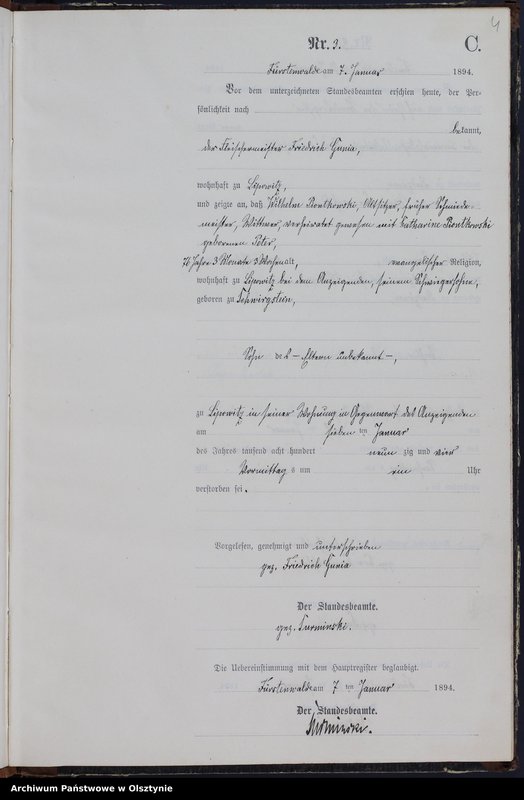 4
Nr. 3. C.
Fürstenwalde am 7. Januar 1894.
Vor dem unterzeichneten Standesbeamten erschien heute, der Per-
sönlichkeit nach
bekannt,
der Fleischermeister Friedrich Gunia,
wohnhaft zu Lipowitz,
und zeigte an, daß Wilhelm Piontkowski, Altsitzer, früher Schmiede-
meister, Wittwer, verheiratet gewesen mit Katharine Piontkowski
geborenen Peter,
76 Jahre 3 Monate 3 Wochen alt, evangelischer Religion,
wohnhaft zu Lipowitz bei dem Anzeigenden, seinem Schwiegersohne,
geboren zu
Sohn de 2 – Eltern unbekannt –,
zu Lipowitz in seiner Wohnung in Gegenwart des Anzeigenden
am sieben ten Januar
des Jahres tausend acht hundert neun zig und vier
Vormittag s um ein Uhr
verstorben sei.
Vorgelesen, genehmigt und unterschrieben
gez. Friedrich Gunia
Der Standesbeamte.
gez.
Die Uebereinstimmung mit dem Hauptregister beglaubigt.
Fürstenwalde am 7 ten Januar 1894.
Der Standesbeamte.
Archiwum Państwowe w Olsztynie